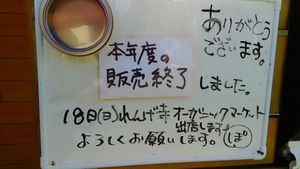 ありがとう
ございます。
本年度の
販売終了
しました。
18日(日)れんげ寺オーガニックマーケット
出店します!
よろしくお願いします。(しぽ)